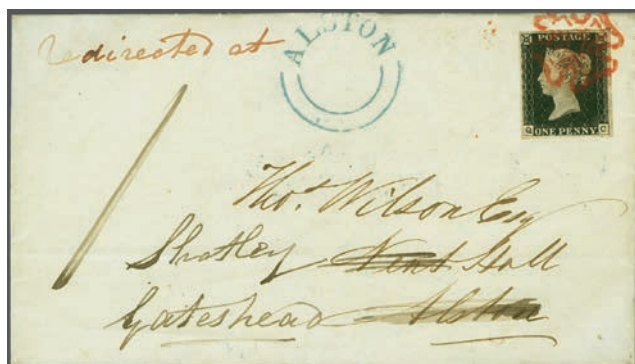 Redirected at
ALSTON
POSTAGE
ONE PENNY
1
Thos. Wilson Esq
Shotley Nent Hall
Gateshead Alston